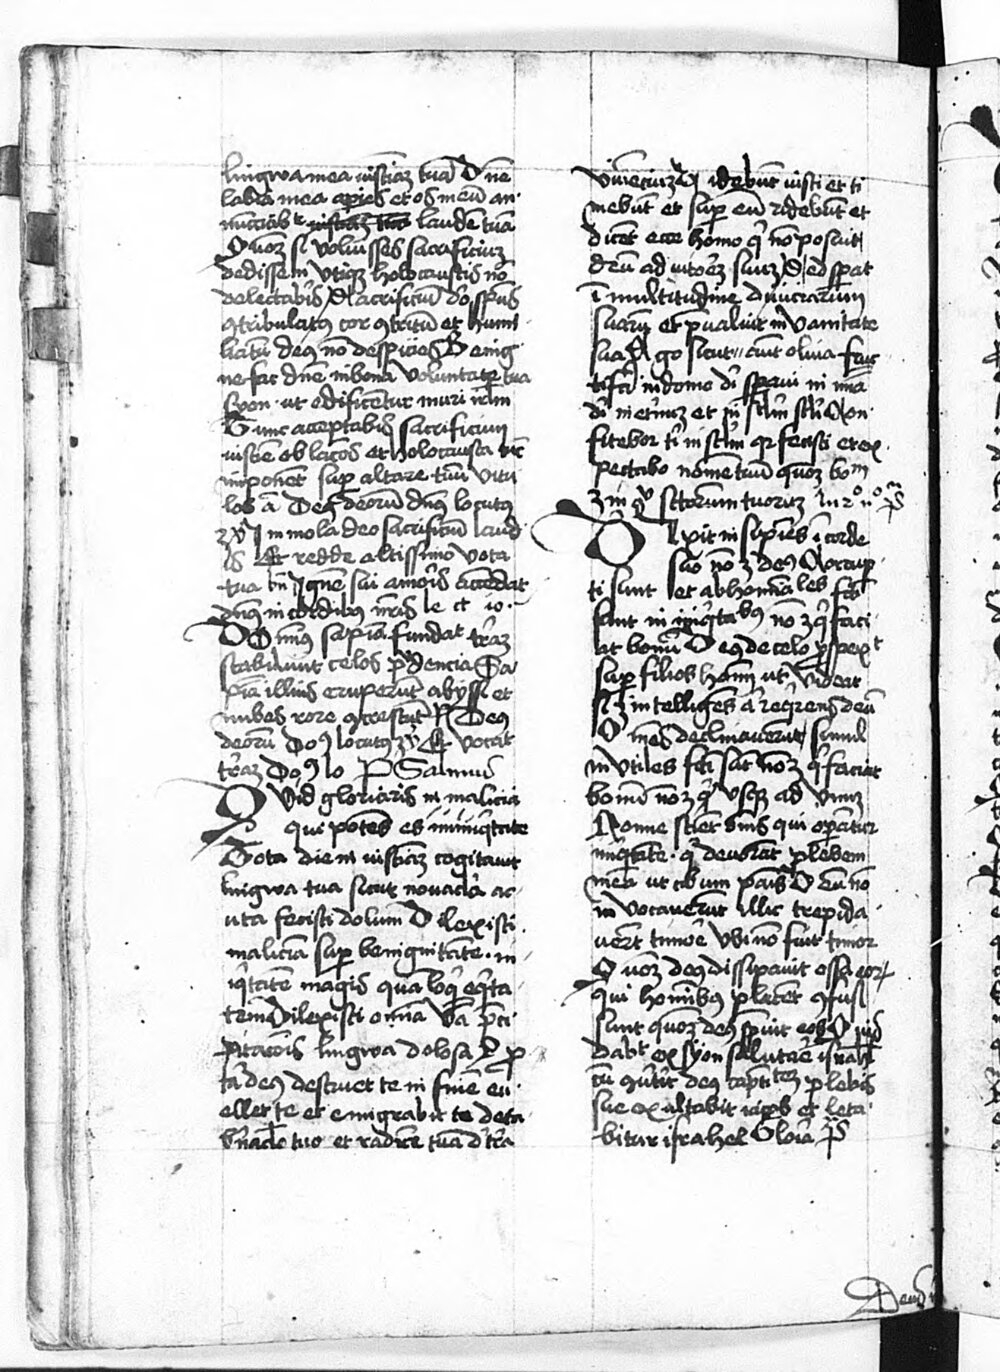 lingwa mea iusticiam tuam Domine
labia mea aperies et os meum an
nunciabit laudem tuam
Quoniam si voluisses sacrificium
dedissem utique holocaustis non
delectaberis Sacrificium deo spiritus
contribulatus cor contritum et humi
liatum deus non despicies Benig
ne fac domine in bona voluntate tua
syon ut edificentur muri ierusalem
Tunc acceptabis sacrificium
iusticie oblaciones et holocausta tunc
imponent super altare tuum vitu
los Deus deorum dominus locutus
Immola deo sacrificium laud
is Et redde altissimo vota
tua Ignem sui amoris accendat
deus in cordibus nostris
Dominus sapiencia fundavit terram
stabilivit celos prudencia Sa
piencia illius eruperunt abyssi et
nubes rore concrescunt Deus
deorum dominus locutus est Et vocavit
terram Psalmus
Quid gloriaris in malicia
qui potens es in iniquitate
Tota die in iusticiam cogitavit
lingwa tua sicut novacula ac
uta fecisti dolum Dilexisti
maliciam super benignitatem in
iquitatem magis quam loqui equita
tem Dilexisti omnia verba preci
pitacionis lingwa dolosa Prop
terea deus destruet te in finem ev
ellet te et emigrabit te de ta
bernaculo tuo et radicem tuam de terra
vivencium Videbunt iusti et ti
mebunt et super eum ridebunt et
dicent ecce homo qui non posuit
deum adiutorem suum Sed speravit
in multitudine diviciarum
suarum et prevaluit in vanitate
sua Ego sicut oliva fruc
tifera in domo dei speravi in misericordia
dei in eternum et in seculum seculi Con
fitebor tibi in seculum quia fecisti et ex
pectabo nomen tuum quoniam bonum
est in conspectu sanctorum tuorum
Dixit insipiens in corde
suo non est deus Corrup
ti sunt et abhominabiles facti
sunt in iniquitatibus non est qui faci
at bonum Deus de celo prospexit
super filios hominum ut videat
si est intelligens aut requirens deum
Omnes declinaverunt simul
inutiles facti sunt non est qui faciat
bonum non est usque ad unum
Nonne scient omnes qui operantur
iniquitatem qui devorant plebem
meam ut cibum panis Deum non
invocaverunt illic trepida
verunt timore ubi non fuit timor
Quoniam deus dissipavit ossa eorum
qui hominibus placent confusi
sunt quoniam deus sprevit eos Quis
dabit ex syon salutare israhel
cum converterit deus captivitatem plebis
sue exultabit iacob et leta
bitur israhel Gloria